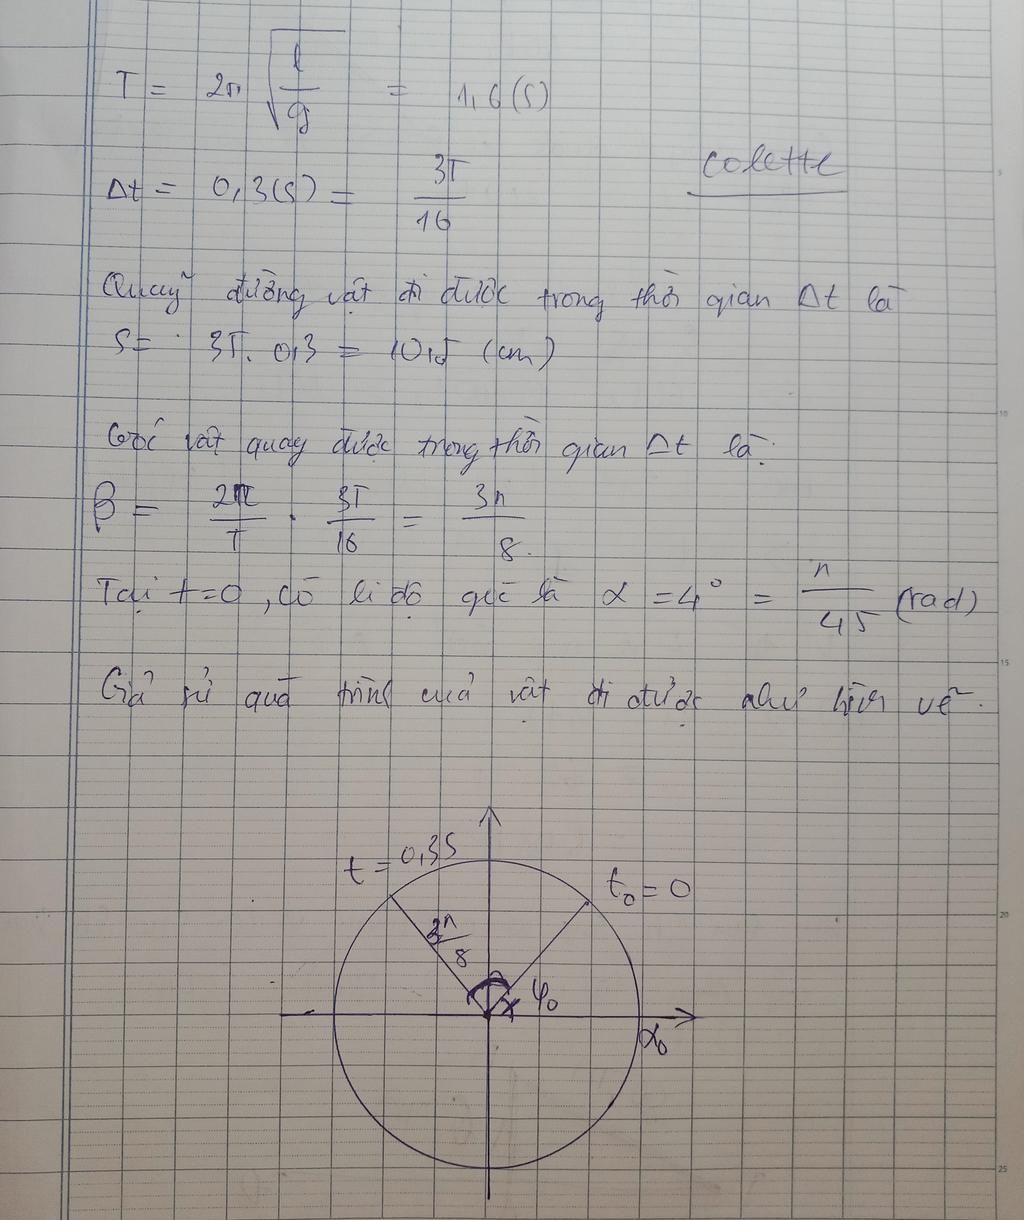 T = 2π √(l/g) = 1,6 (s)
colette
Δt = 0,3(s) = 3T/16
Quãy đường vật đi được trong thời gian Δt là
S = 35. 0,3 = 10,5 (cm)
Góc vật quay được trong thời gian Δt là:
β = 2π/T . 3T/16 = 3π/8.
Tại t=0, có li độ góc là α = 4° = π/45 (rad)
Giả sử quá trình của vật đi được như hình vẽ.
t = 0,3s
t₀ = 0
3π/8
φ₀
α₀